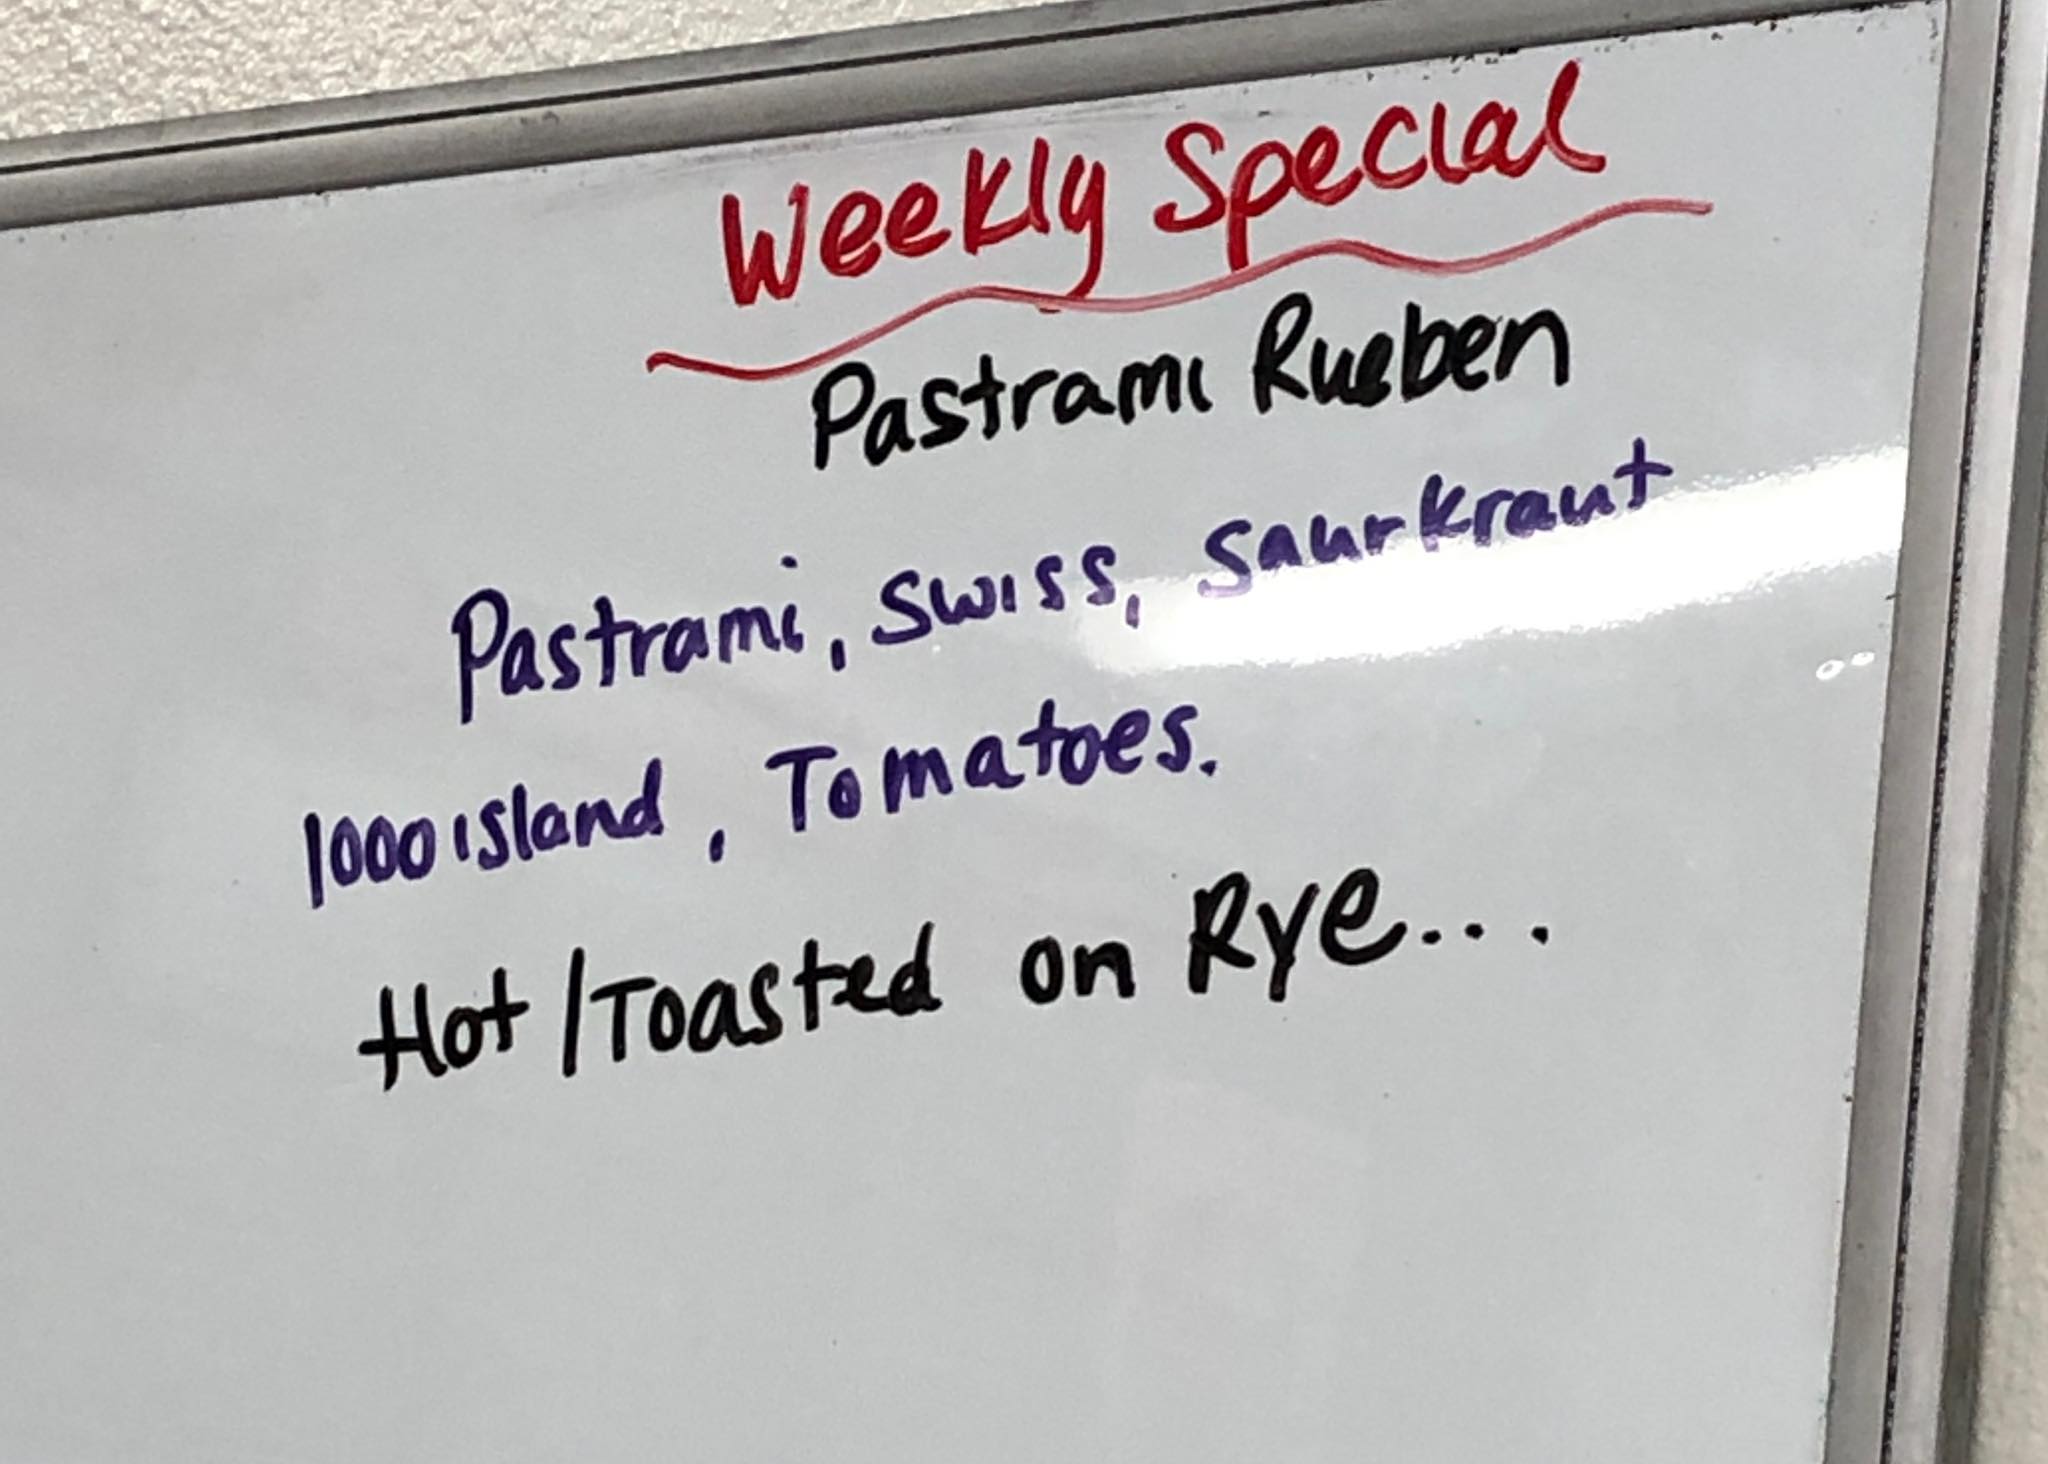 Weekly Special
Pastrami Rueben
Pastrami, Swiss, Saurkraut
1000 island, Tomatoes.
Hot/Toasted on Rye...